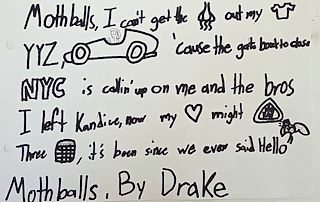 Mothballs, I can't get the out my
YYZ, 'cause the gate bout to close
NYC is callin' up on me and the bros
I left Kandice, now my might
Three , it's been since we ever said Hello"
Mothballs. By Drake